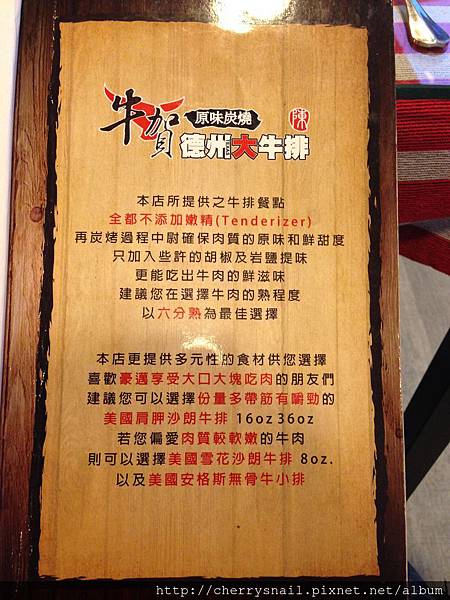 牛賀
原味炭燒
陳
德州大牛排
本店所提供之牛排餐點
全都不添加嫩精(Tenderizer)
再炭烤過程中尉確保肉質的原味和鮮甜度
只加入些許的胡椒及岩鹽提味
更能吃出牛肉的鮮滋味
建議您在選擇牛肉的熟程度
以六分熟為最佳選擇
本店更提供多元性的食材供您選擇
喜歡豪邁享受大口大塊吃肉的朋友們
建議您可以選擇份量多帶筋有嚼勁的
美國肩胛沙朗牛排 16oz 36oz
若您偏愛肉質較軟嫩的牛肉
則可以選擇美國雪花沙朗牛排 8oz.
以及美國安格斯無骨牛小排
http://cherrysnail.pixnet.net/album